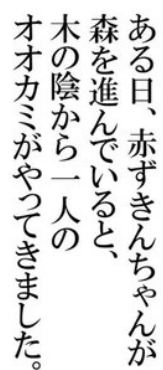 ある日、赤ずきんちゃんが
森を進んでいると、
木の陰から一人の
オオカミがやってきました。